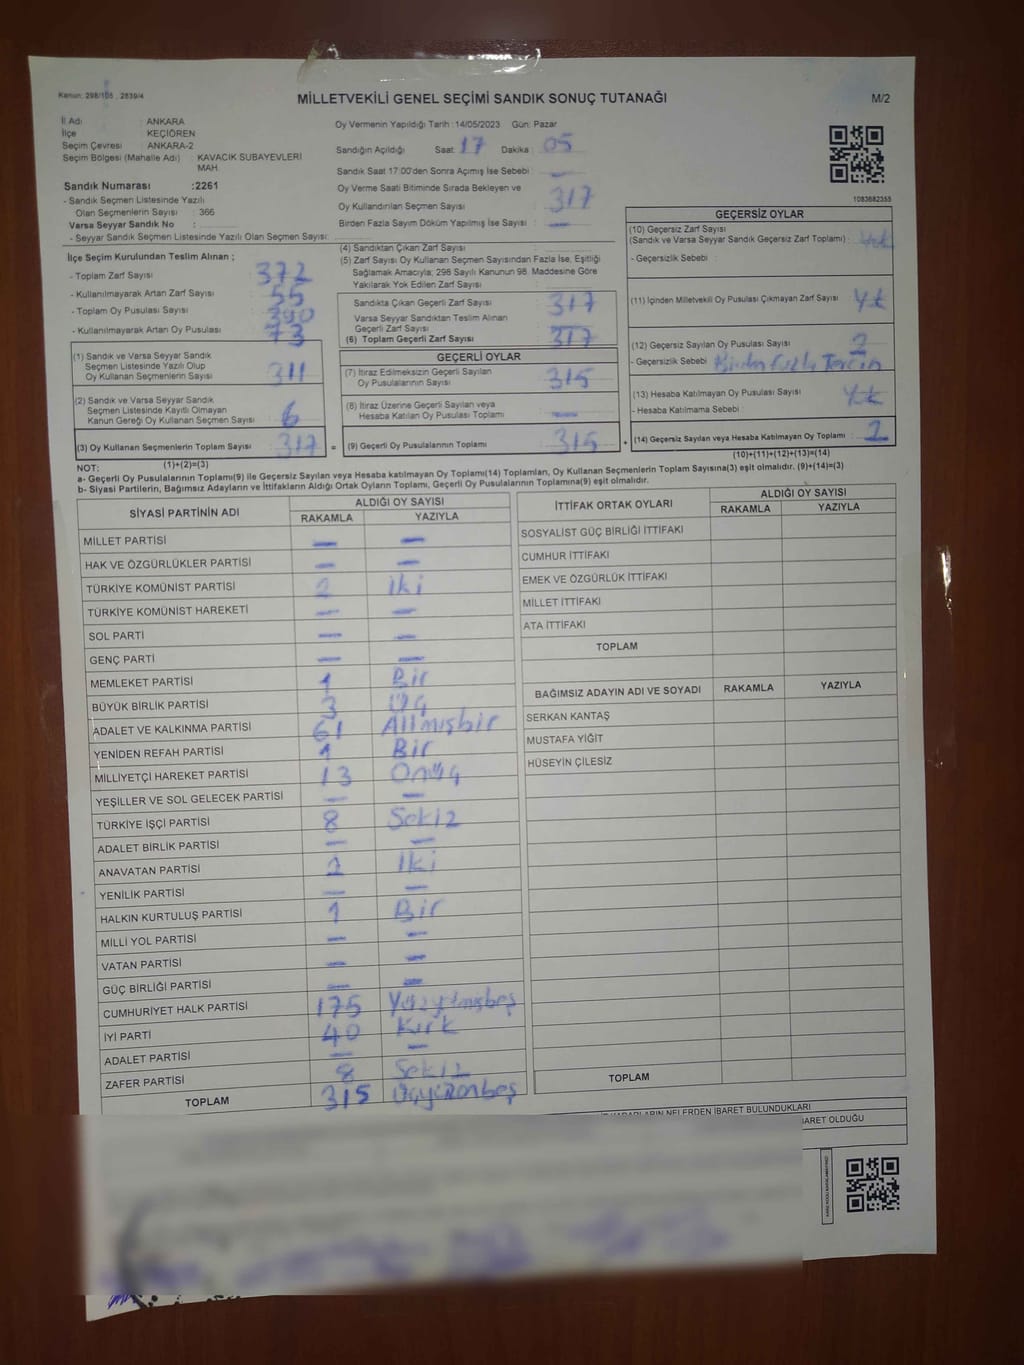 Kanun: 298/105 , 2839/4
MİLLETVEKİLİ GENEL SEÇİMİ SANDIK SONUÇ TUTANAĞI
M/2
İl Adı : ANKARA
İlçe : KEÇİÖREN
Seçim Çevresi : ANKARA-2
Seçim Bölgesi (Mahalle Adı) : KAVACIK SUBAYEVLERİ MAH.
Sandık Numarası :2261
- Sandık Seçmen Listesinde Yazılı
Olan Seçmenlerin Sayısı : 366
Varsa Seyyar Sandık No :
- Seyyar Sandık Seçmen Listesinde Yazılı Olan Seçmen Sayısı:
Oy Vermenin Yapıldığı Tarih : 14/05/2023 Gün: Pazar
Sandığın Açıldığı Saat: 17 Dakika : 05
Sandık Saat 17:00'den Sonra Açımış İse Sebebi : —
Oy Verme Saati Bitiminde Sırada Bekleyen ve
Oy Kullandırılan Seçmen Sayısı : 317
Birden Fazla Sayım Döküm Yapılmış İse Sayısı : —
1083682355
İlçe Seçim Kurulundan Teslim Alınan ;
- Toplam Zarf Sayısı : 372
- Kullanılmayarak Artan Zarf Sayısı : 55
- Toplam Oy Pusulası Sayısı : 390
- Kullanılmayarak Artan Oy Pusulası : 73
(1) Sandık ve Varsa Seyyar Sandık
Seçmen Listesinde Yazılı Olup
Oy Kullanan Seçmenlerin Sayısı : 311
(2) Sandık ve Varsa Seyyar Sandık
Seçmen Listesinde Kayıtlı Olmayan
Kanun Gereği Oy Kullanan Seçmen Sayısı : 6
(3) Oy Kullanan Seçmenlerin Toplam Sayısı : 317
(1)+(2)=(3)
(4) Sandıktan Çıkan Zarf Sayısı :
(5) Zarf Sayısı Oy Kullanan Seçmen Sayısından Fazla İse, Eşitliği
Sağlamak Amacıyla; 298 Sayılı Kanunun 98. Maddesine Göre
Yakılarak Yok Edilen Zarf Sayısı :
Sandıkta Çıkan Geçerli Zarf Sayısı : 317
Varsa Seyyar Sandıktan Teslim Alınan
Geçerli Zarf Sayısı :
(6) Toplam Geçerli Zarf Sayısı : 317
GEÇERLİ OYLAR
(7) İtiraz Edilmeksizin Geçerli Sayılan
Oy Pusulalarının Sayısı : 315
(8) İtiraz Üzerine Geçerli Sayılan veya
Hesaba Katılan Oy Pusulası Toplamı : —
= (9) Geçerli Oy Pusulalarının Toplamı : 315 +
GEÇERSİZ OYLAR
(10) Geçersiz Zarf Sayısı
(Sandık ve Varsa Seyyar Sandık Geçersiz Zarf Toplamı) :
- Geçersizlik Sebebi :
(11) İçinden Milletvekili Oy Pusulası Çıkmayan Zarf Sayısı :
(12) Geçersiz Sayılan Oy Pusulası Sayısı : 2
- Geçersizlik Sebebi :
(13) Hesaba Katılmayan Oy Pusulası Sayısı :
- Hesaba Katılmama Sebebi :
(14) Geçersiz Sayılan veya Hesaba Katılmayan Oy Toplamı : 2
(10)+(11)+(12)+(13)=(14)
NOT:
a- Geçerli Oy Pusulalarının Toplamı(9) ile Geçersiz Sayılan veya Hesaba katılmayan Oy Toplamı(14) Toplamları, Oy Kullanan Seçmenlerin Toplam Sayısına(3) eşit olmalıdır. (9)+(14)=(3)
b- Siyasi Partilerin, Bağımsız Adayların ve İttifakların Aldığı Ortak Oyların Toplamı, Geçerli Oy Pusulalarının Toplamına(9) eşit olmalıdır.
SİYASİ PARTİNİN ADI ALDIĞI OY SAYISI
RAKAMLA YAZIYLA
MİLLET PARTİSİ — —
HAK VE ÖZGÜRLÜKLER PARTİSİ — —
TÜRKİYE KOMÜNİST PARTİSİ 2 iki
TÜRKİYE KOMÜNİST HAREKETİ — —
SOL PARTİ — —
GENÇ PARTİ — —
MEMLEKET PARTİSİ 1 Bir
BÜYÜK BİRLİK PARTİSİ 3 Üç
ADALET VE KALKINMA PARTİSİ 61 Altmışbir
YENİDEN REFAH PARTİSİ 1 Bir
MİLLİYETÇİ HAREKET PARTİSİ 13 Onüç
YEŞİLLER VE SOL GELECEK PARTİSİ — —
TÜRKİYE İŞÇİ PARTİSİ 8 Sekiz
ADALET BİRLİK PARTİSİ — —
ANAVATAN PARTİSİ 2 İki
YENİLİK PARTİSİ — —
HALKIN KURTULUŞ PARTİSİ 1 Bir
MİLLİ YOL PARTİSİ — —
VATAN PARTİSİ — —
GÜÇ BİRLİĞİ PARTİSİ — —
CUMHURİYET HALK PARTİSİ 175 Yüzyetmişbeş
İYİ PARTİ 40 Kırk
ADALET PARTİSİ — —
ZAFER PARTİSİ 8 Sekiz
TOPLAM 315 Üçyüzonbeş
İTTİFAK ORTAK OYLARI ALDIĞI OY SAYISI
RAKAMLA YAZIYLA
SOSYALİST GÜÇ BİRLİĞİ İTTİFAKI
CUMHUR İTTİFAKI
EMEK VE ÖZGÜRLÜK İTTİFAKI
MİLLET İTTİFAKI
ATA İTTİFAKI
TOPLAM
BAĞIMSIZ ADAYIN ADI VE SOYADI RAKAMLA YAZIYLA
SERKAN KANTAŞ
MUSTAFA YİĞİT
HÜSEYİN ÇİLESİZ
TOPLAM
NELERDEN İBARET BULUNDUKLARI
OLDUĞU